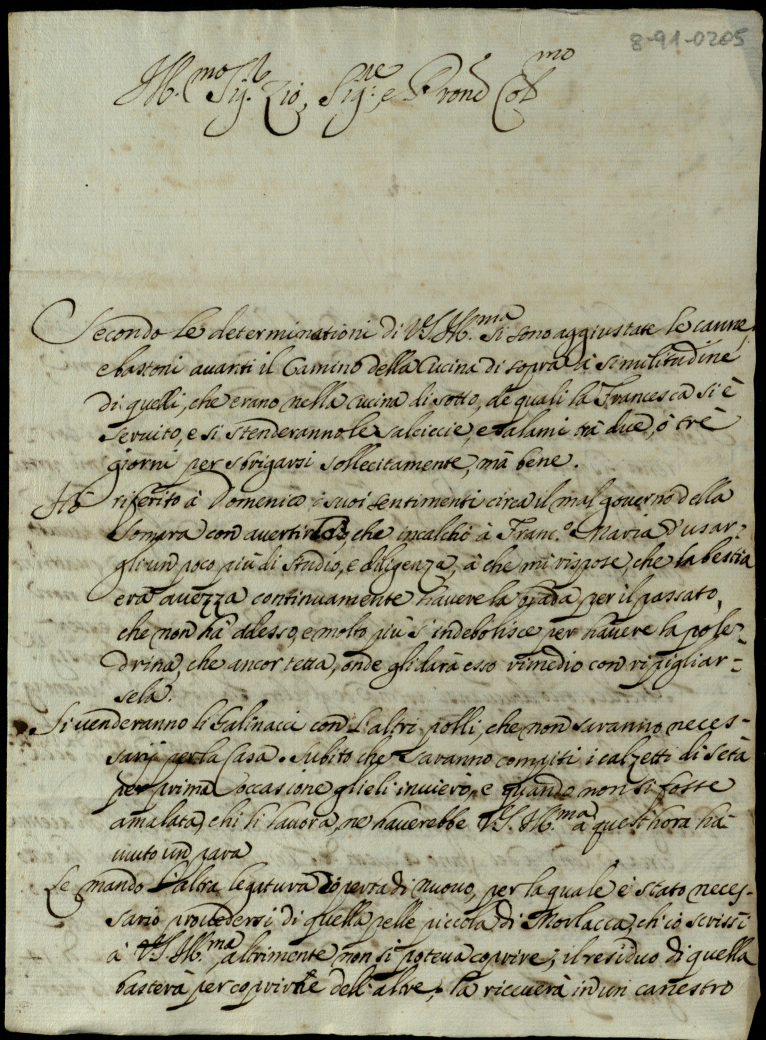 8-91-0205
Ill.mo Sig.r Zio, Sig.re e Pron Col.mo
Secondo le determinationi di V.S. Ill.ma si sono aggiustate le canne,
e bastoni auanti il Camino della Cucina di sopra à similitudine
di quelli, che erano nella cucina di sotto, de quali la Francesca si è
seruito, e si stenderanno le salciccie, e salami trà due, ò trè
giorni per sbrigarsi sollecitamente, mà bene.
Hò riferito à Domenico i suoi sentimenti circa il mal gouerno della
Somara con auertirlo, che incalchi à Franc.o Maria d'usar-
gli un poco più di studio, e diligenza, à che mi rispose, che la bestia
era auezza continuamente hauere la biada per il passato,
che non hà adesso, e molto più s'indebolisce per hauere la pole-
drina, che ancor tetta, onde gli darà esso rimedio con ripigliar-
sela.
Si uenderanno li Galinacci con l'altri polli, che non saranno neces-
sarij per la Casa. Subito che saranno compiti i calzetti di seta
per prima occasione glieli inuierò, e quando non si fosse
amalata, chi li lauora, ne hauerebbe V.S. Ill.ma à quest'hora ha-
uuto un para
Le mando l'altra legatura coperta di nuouo, per la quale è stato neces-
sario prouedersi di quella pelle piccola di Morlacca, ch'io scrissi
à V.S. Ill.ma altrimente non si poteua coprire; il residuo di quella
basterà per coprirne dell'altre; la riceuerà in un canestro